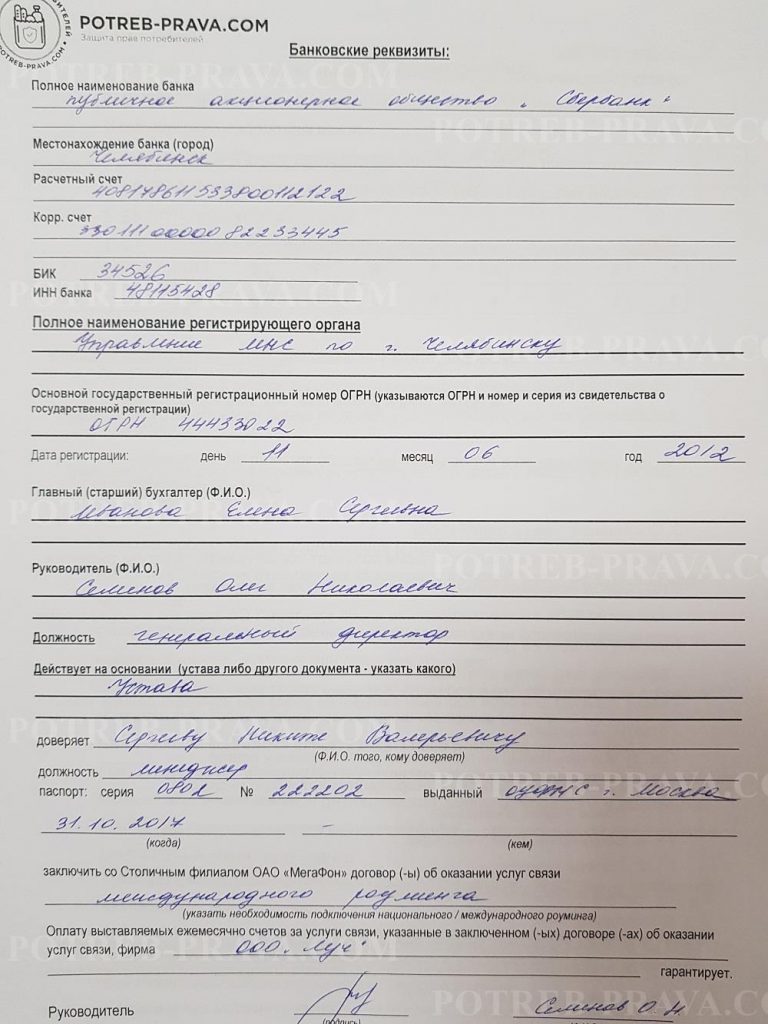 POTREB-PRAVA.COM
Защита прав потребителей
POTREB-PRAVA.COM
Банковские реквизиты:
Полное наименование банка
публичное акционерное общество „Сбербанк“
Местонахождение банка (город)
Челябинск
Расчетный счет
40817861153380011 2122
Корр. счет
33011100000 82233445
БИК 34526
ИНН банка 48115428
Полное наименование регистрирующего органа
Управление МНС по г. Челябинску
Основной государственный регистрационный номер ОГРН (указываются ОГРН и номер и серия из свидетельства о
государственной регистрации)
ОГРН 44433022
Дата регистрации: день 11 месяц 06 год 2012
Главный (старший) бухгалтер (Ф.И.О.)
Иванова Елена Сергеевна
Руководитель (Ф.И.О.)
Семинов Олег Николаевич
Должность генеральный директор
Действует на основании (устава либо другого документа - указать какого)
Устава
доверяет Сергееву Никите Валерьевичу
(Ф.И.О. того, кому доверяет)
должность менеджер
паспорт: серия 0802 № 222202 выданный г. Москва
31.10.2017 –
(когда) (кем)
заключить со Столичным филиалом ОАО «МегаФон» договор (-ы) об оказании услуг связи
международного роуминга
(указать необходимость подключения национального / международного роуминга)
Оплату выставляемых ежемесячно счетов за услуги связи, указанные в заключенном (-ых) договоре (-ах) об оказании
услуг связи, фирма ООО „Луч“
гарантирует.
Руководитель Семинов О.Н.
(подпись)